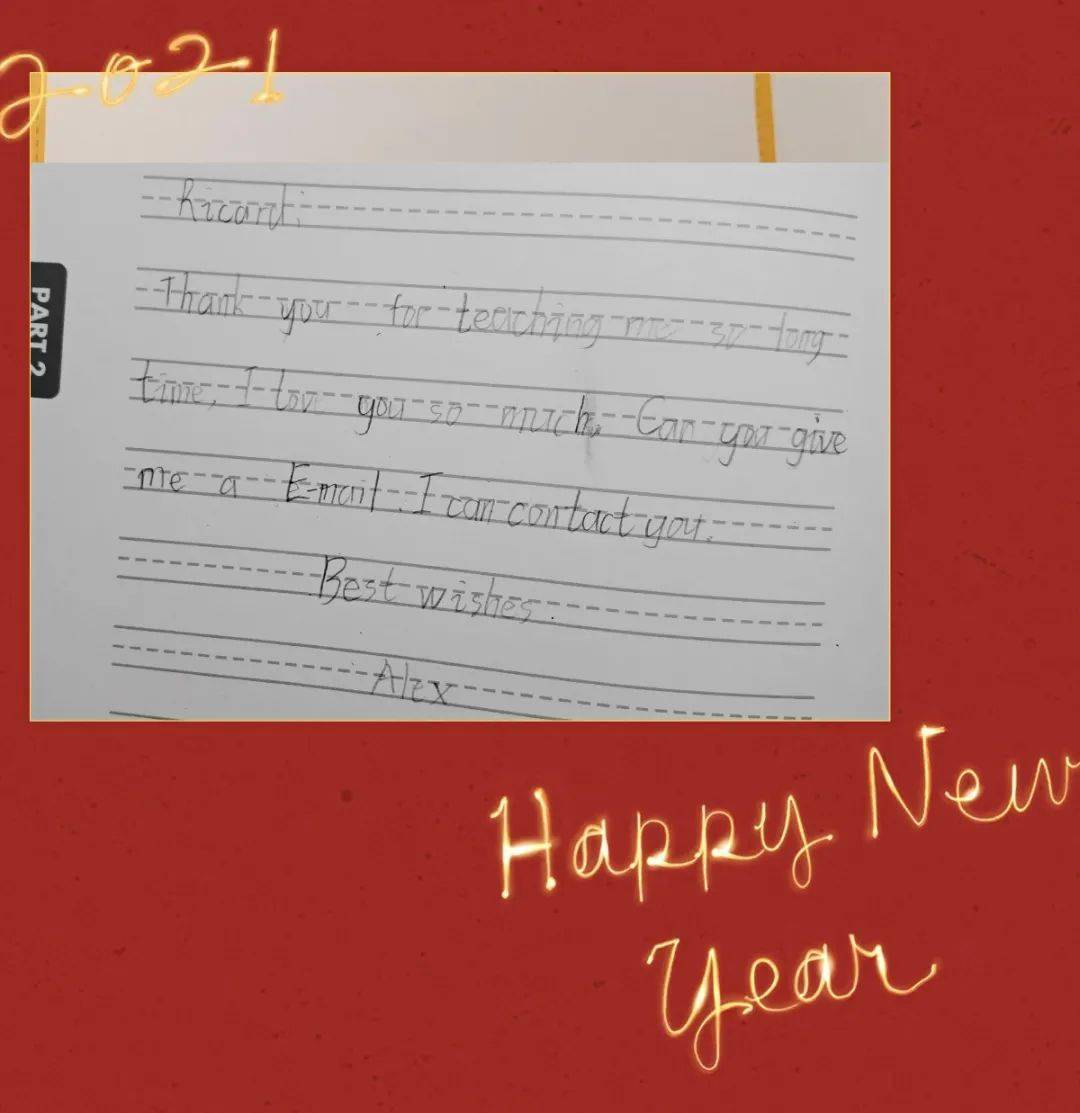 2021
PART 2
Ricard,
Thank you for teaching me so long
time, I lov you so much. Can you give
me a E-mail. I can contact you.
Best wishes.
Alex
Happy New
Year